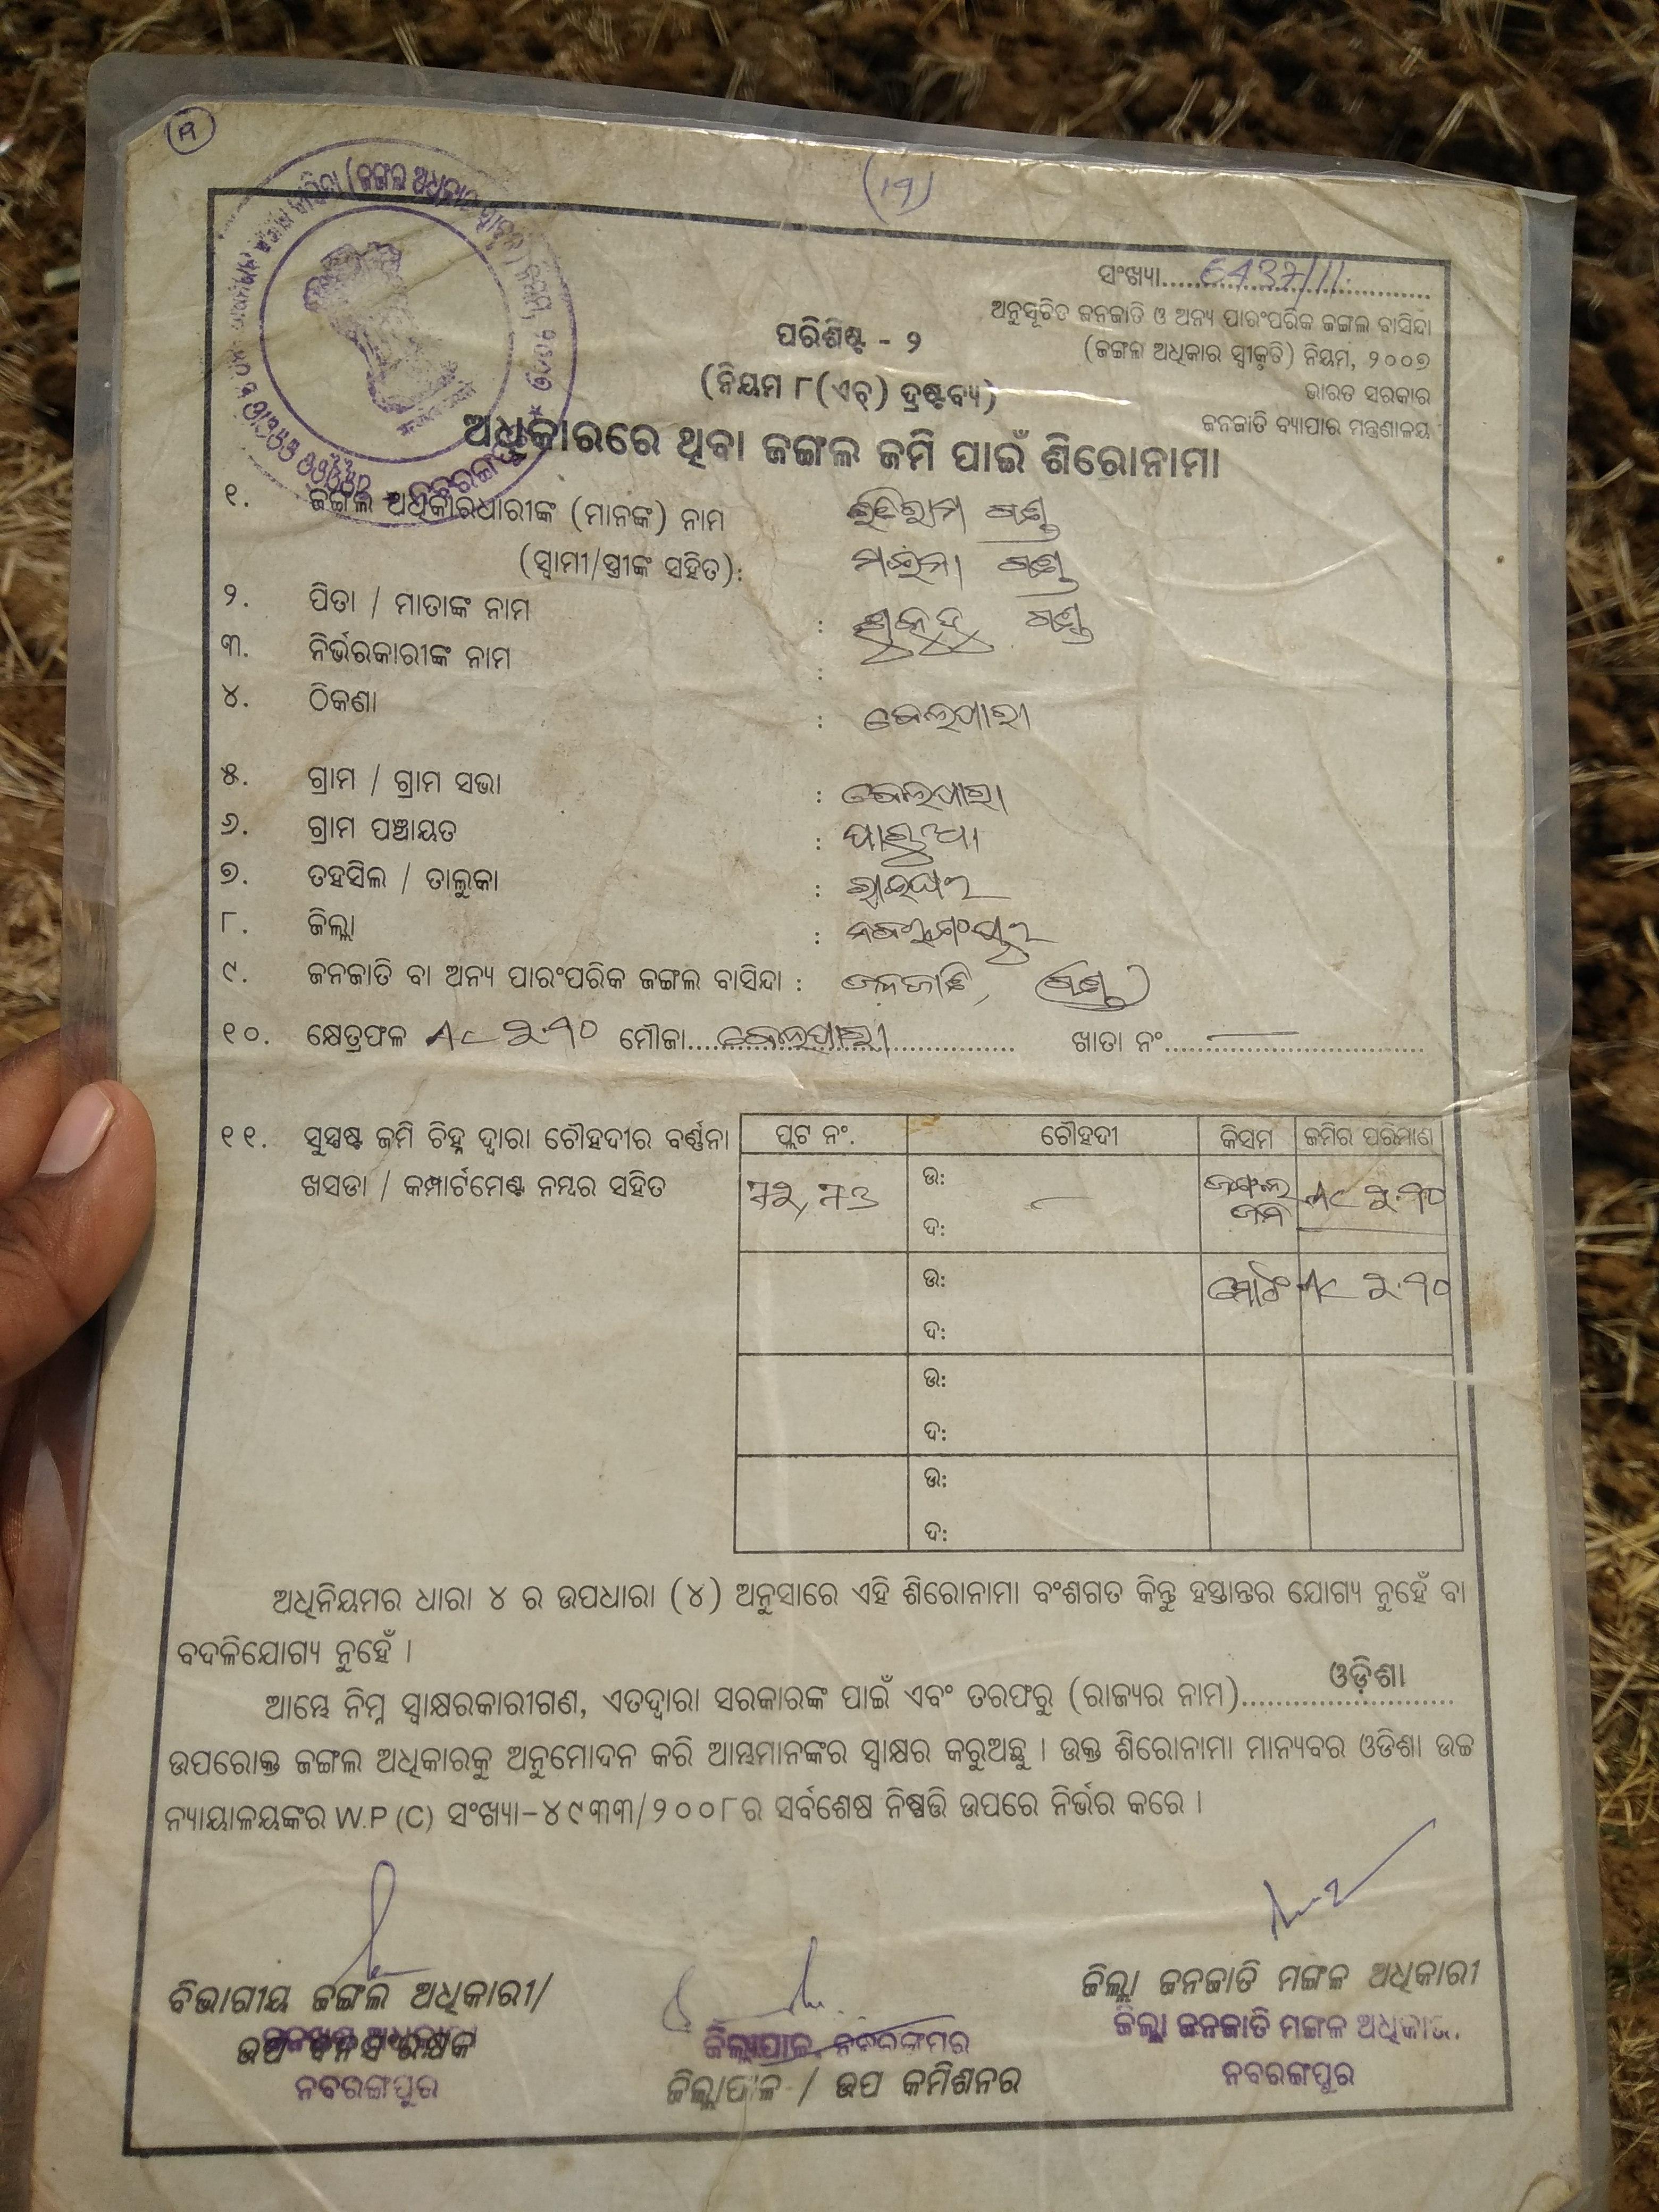 (୩୨)
ସଂଖ୍ୟା........6437/11........
ଅନୁସୂଚିତ ଜନଜାତି ଓ ଅନ୍ୟ ପାରଂପରିକ ଜଙ୍ଗଲ ବାସିନ୍ଦା
(ଜଙ୍ଗଲ ଅଧିକାର ସ୍ୱୀକୃତି) ନିୟମ, ୨୦୦୭
ଭାରତ ସରକାର
ଜନଜାତି ବ୍ୟାପାର ମନ୍ତ୍ରଣାଳୟ
ପରିଶିଷ୍ଟ - ୨
(ନିୟମ ୮(ଏଚ୍) ଦ୍ରଷ୍ଟବ୍ୟ)
ଅଧିକାରରେ ଥିବା ଜଙ୍ଗଲ ଜମି ପାଇଁ ଶିରୋନାମା
୧. ଜଙ୍ଗଲ ଅଧିକାରଧାରୀଙ୍କ (ମାନଙ୍କ) ନାମ ଗଣ୍ଡ
(ସ୍ୱାମୀ/ସ୍ତ୍ରୀଙ୍କ ସହିତ): ଗଣ୍ଡ
୨. ପିତା / ମାତାଙ୍କ ନାମ : ଗଣ୍ଡ
୩. ନିର୍ଭରକାରୀଙ୍କ ନାମ :
୪. ଠିକଣା : ବେଲପାରା
୫. ଗ୍ରାମ / ଗ୍ରାମ ସଭା : ବେଲପାରା
୬. ଗ୍ରାମ ପଞ୍ଚାୟତ :
୭. ତହସିଲ / ତାଲୁକା : ରାଇଘର
୮. ଜିଲ୍ଲା : ନବରଙ୍ଗପୁର
୯. ଜନଜାତି ବା ଅନ୍ୟ ପାରଂପରିକ ଜଙ୍ଗଲ ବାସିନ୍ଦା : ଜନଜାତି, (ଗଣ୍ଡ)
୧୦. କ୍ଷେତ୍ରଫଳ Ac ୨.୩୦ ମୌଜା....ବେଲପାରା.... ଖାତା ନଂ........
୧୧. ସୁସ୍ପଷ୍ଟ ଜମି ଚିହ୍ନ ଦ୍ୱାରା ଚୌହଦୀର ବର୍ଣ୍ଣନା
ଖସଡା / କମ୍ପାର୍ଟମେଣ୍ଟ ନମ୍ବର ସହିତ
ପ୍ଲଟ ନଂ. ଚୌହଦୀ କିସମ ଜମିର ପରିମାଣ
ଉ: ଜଙ୍ଗଲ Ac ୨.୩୦
ଦ: ଜମି
ଉ: ମୋଟ Ac ୨.୩୦
ଦ:
ଉ:
ଦ:
ଉ:
ଦ:
ଅଧିନିୟମର ଧାରା ୪ ର ଉପଧାରା (୪) ଅନୁସାରେ ଏହି ଶିରୋନାମା ବଂଶଗତ କିନ୍ତୁ ହସ୍ତାନ୍ତର ଯୋଗ୍ୟ ନୁହେଁ ବା
ବଦଳିଯୋଗ୍ୟ ନୁହେଁ ।
ଆମ୍ଭେ ନିମ୍ନ ସ୍ୱାକ୍ଷରକାରୀଗଣ, ଏତଦ୍ୱାରା ସରକାରଙ୍କ ପାଇଁ ଏବଂ ତରଫରୁ (ରାଜ୍ୟର ନାମ)........ଓଡ଼ିଶା........
ଉପରୋକ୍ତ ଜଙ୍ଗଲ ଅଧିକାରକୁ ଅନୁମୋଦନ କରି ଆମ୍ଭମାନଙ୍କର ସ୍ୱାକ୍ଷର କରୁଅଛୁ । ଉକ୍ତ ଶିରୋନାମା ମାନ୍ୟବର ଓଡିଶା ଉଚ୍ଚ
ନ୍ୟାୟାଳୟଙ୍କର W.P (C) ସଂଖ୍ୟା-୪୯୩୩/୨୦୦୮ର ସର୍ବଶେଷ ନିଷ୍ପତ୍ତି ଉପରେ ନିର୍ଭର କରେ ।
ବିଭାଗୀୟ ଜଙ୍ଗଲ ଅଧିକାରୀ/
ଉପ ବନ ସଂରକ୍ଷକ
ନବରଙ୍ଗପୁର
ଜିଲ୍ଲାପାଳ, ନବରଙ୍ଗପୁର
ଜିଲ୍ଲାପାଳ / ଉପ କମିଶନର
ଜିଲ୍ଲା ଜନଜାତି ମଙ୍ଗଳ ଅଧିକାରୀ
ଜିଲ୍ଲା ଜନଜାତି ମଙ୍ଗଳ ଅଧିକାରୀ
ନବରଙ୍ଗପୁର